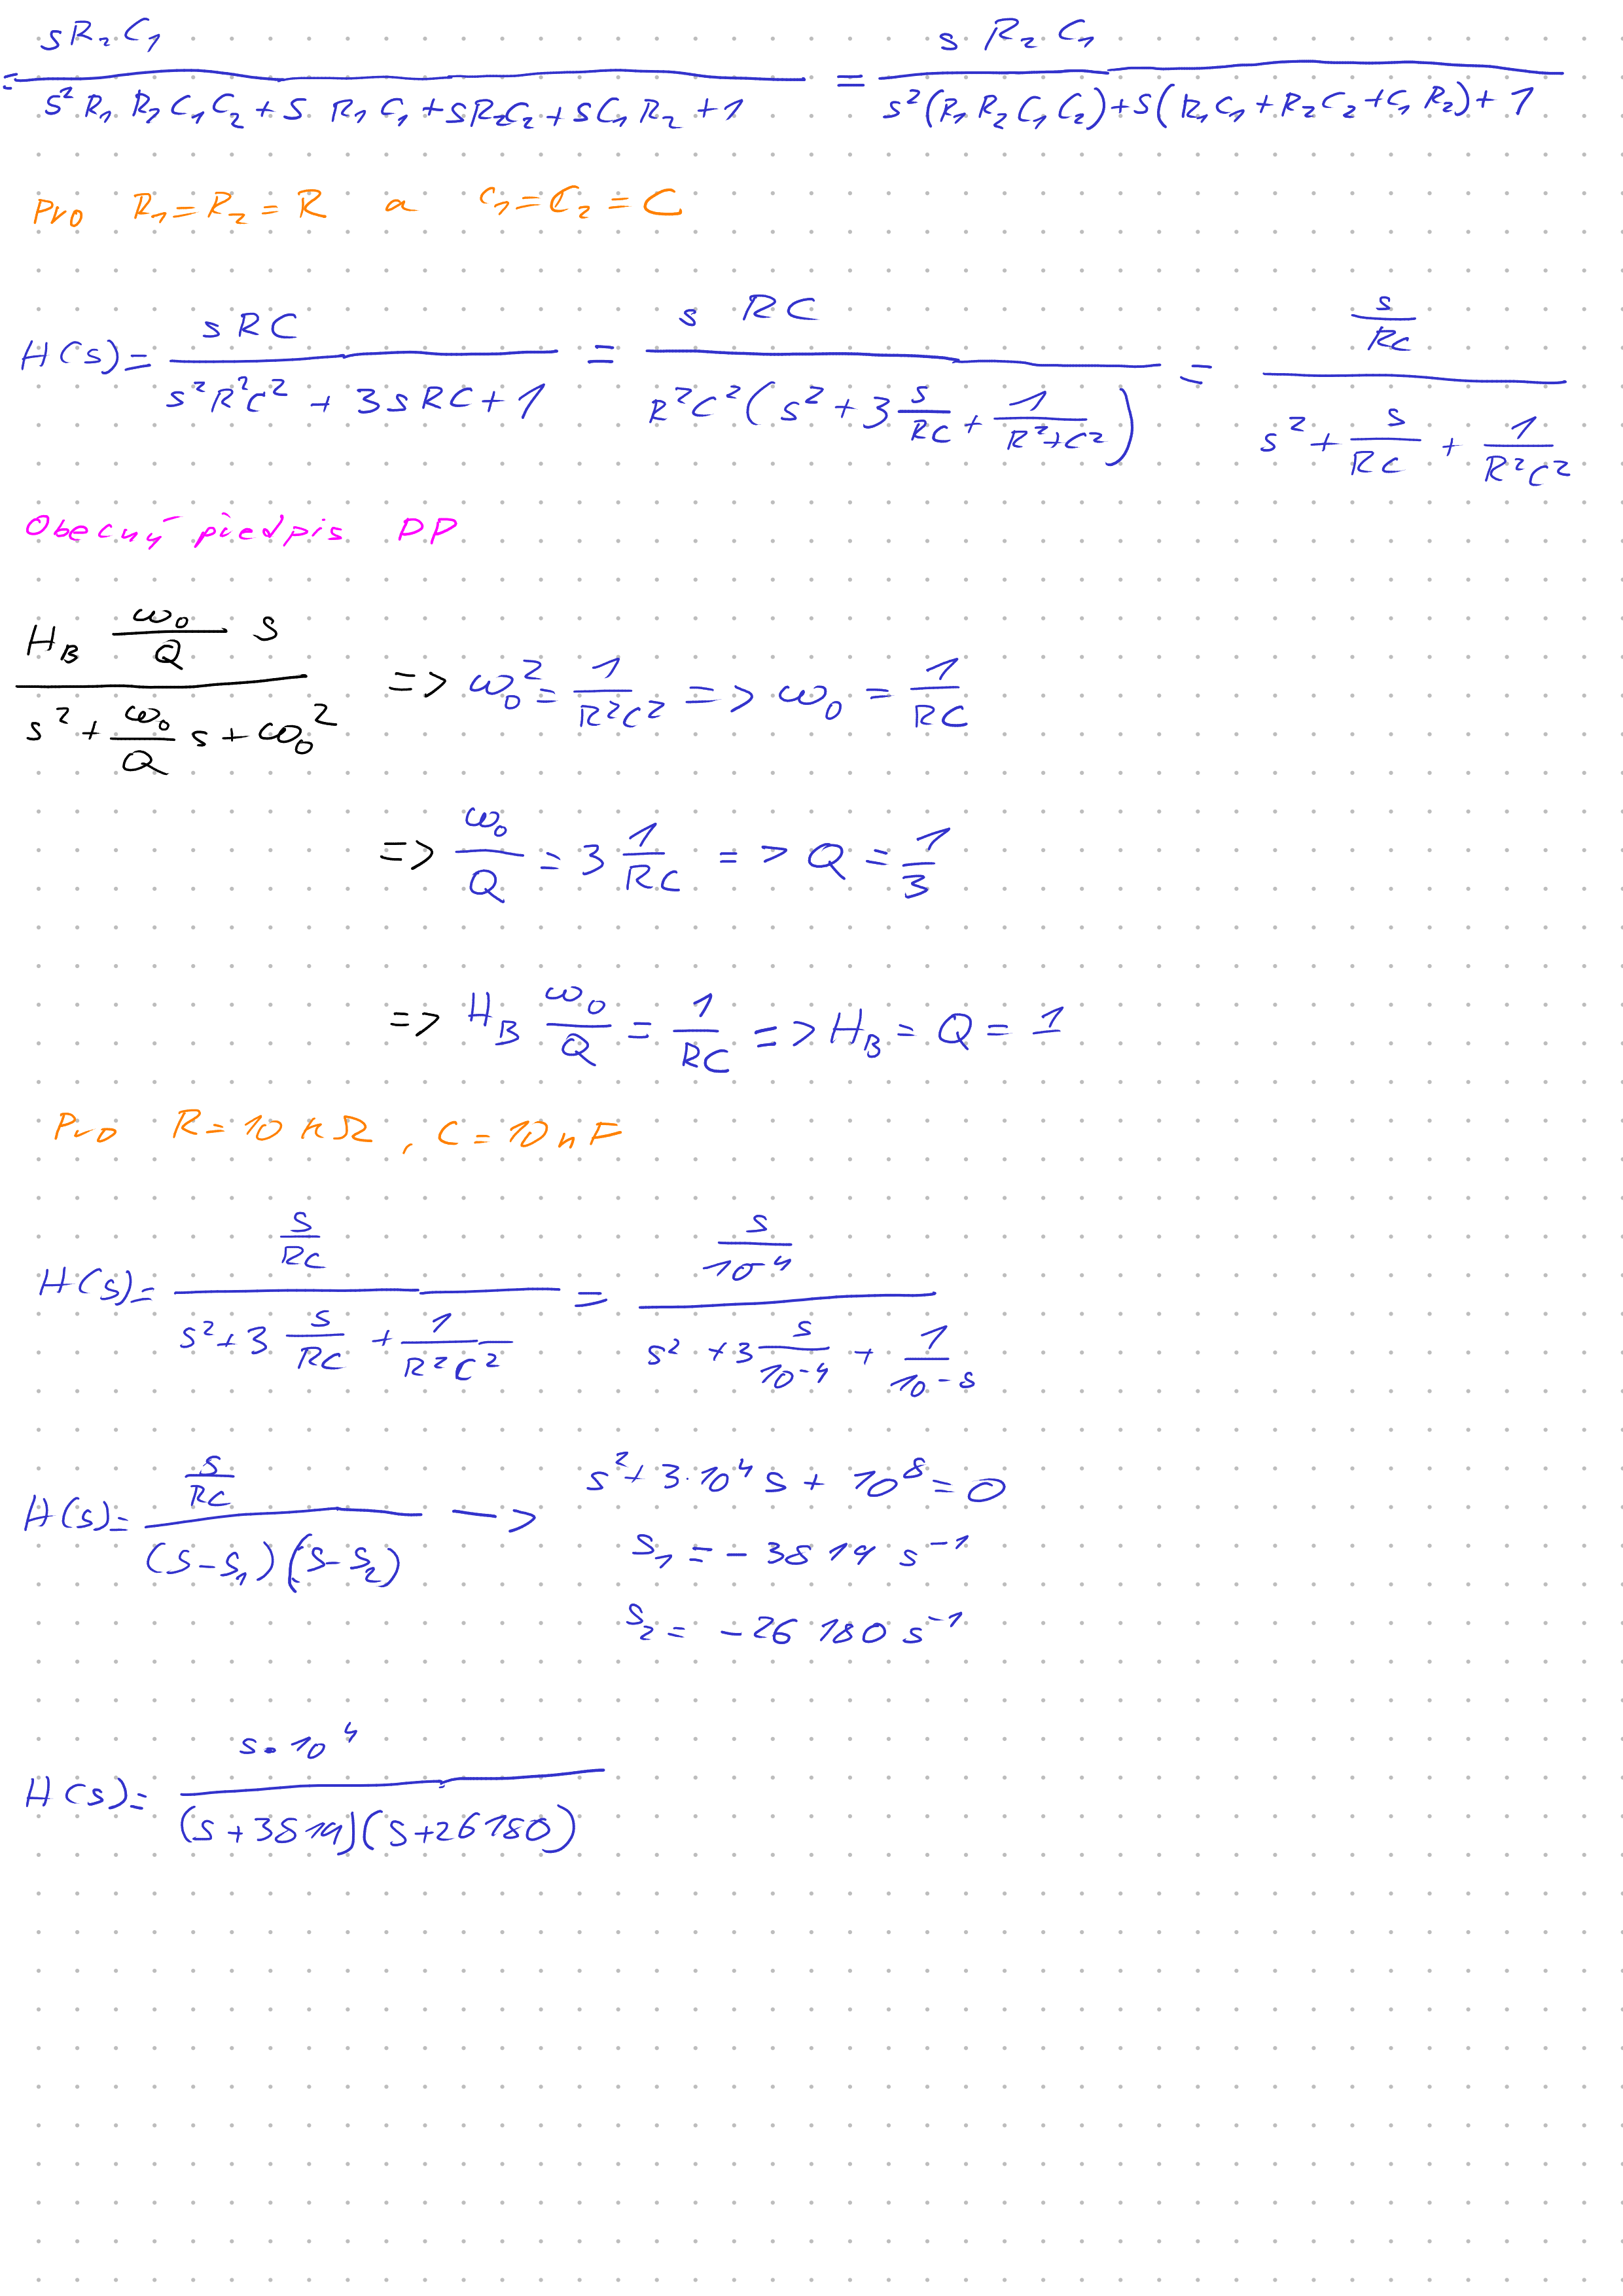 = sR₂C₁ / (s²R₁R₂C₁C₂ + sR₁C₁ + sR₂C₂ + sC₁R₂ + 1) = sR₂C₁ / (s²(R₁R₂C₁C₂) + s(R₁C₁ + R₂C₂ + C₁R₂) + 1)
Pro R₁ = R₂ = R a C₁ = C₂ = C
H(s) = sRC / (s²R²C² + 3sRC + 1) = sRC / (R²C²(s² + 3 s/RC + 1/(R²+C²))) = (s/RC) / (s² + s/RC + 1/(R²C²))
Obecný předpis PP
(H_B ω₀/Q s) / (s² + ω₀/Q s + ω₀²) => ω₀² = 1/(R²C²) => ω₀ = 1/RC
=> ω₀/Q = 3 1/RC => Q = 1/3
=> H_B ω₀/Q = 1/RC => H_B = Q = 1
Pro R = 10 kΩ, C = 10 nF
H(s) = (s/RC) / (s² + 3 s/RC + 1/(R²C²)) = (s/10⁻⁴) / (s² + 3 s/10⁻⁴ + 1/10⁻⁸)
H(s) = (s/RC) / ((s-s₁)(s-s₂)) --> s² + 3·10⁴s + 10⁸ = 0
s₁ = -3819 s⁻¹
s₂ = -26180 s⁻¹
H(s) = s·10⁴ / ((s+3819)(s+26180))